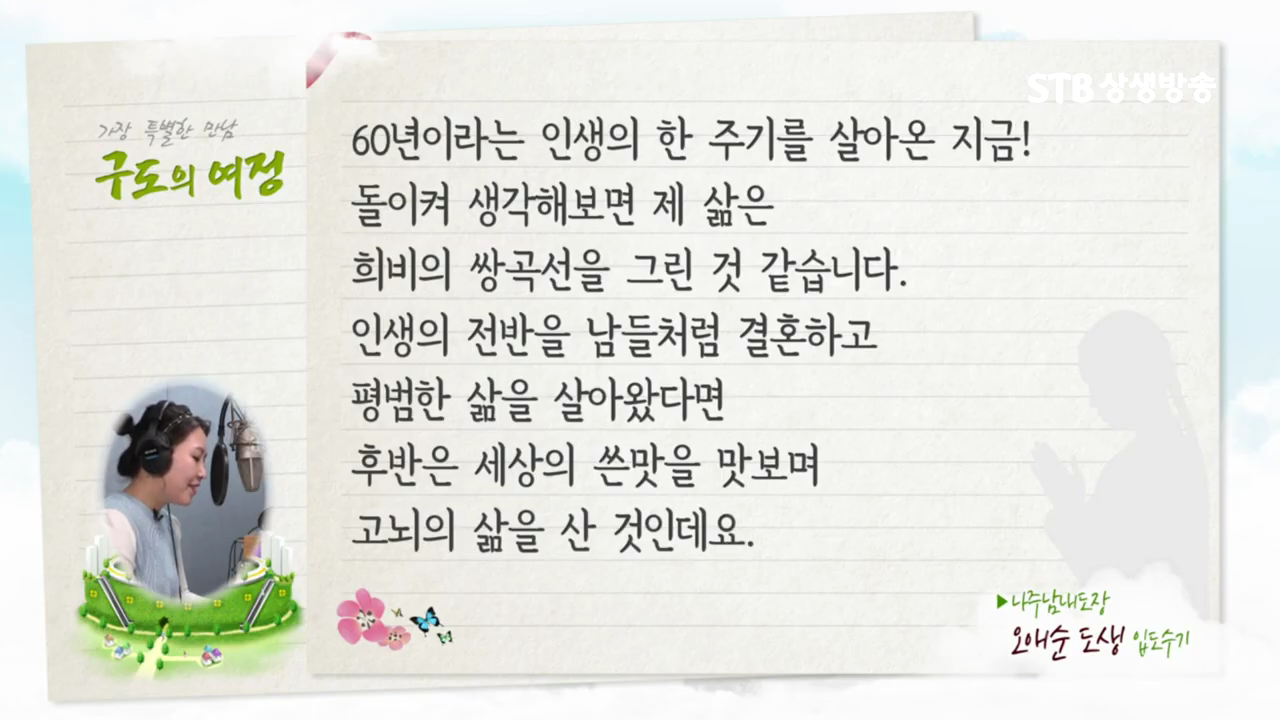 STB 상생방송
가장 특별한 만남
구도의 여정
60년이라는 인생의 한 주기를 살아온 지금!
돌이켜 생각해보면 제 삶은
희비의 쌍곡선을 그린 것 같습니다.
인생의 전반을 남들처럼 결혼하고
평범한 삶을 살아왔다면
후반은 세상의 쓴맛을 맛보며
고뇌의 삶을 산 것인데요.
▶나주남내도장
오애순 도생 입도수기